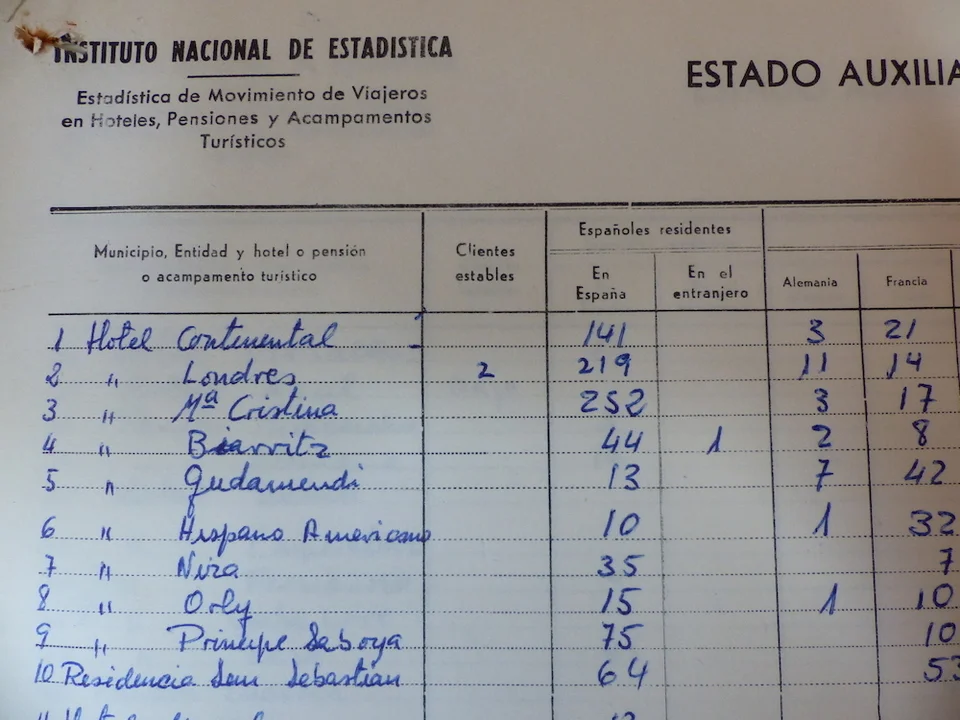 INSTITUTO NACIONAL DE ESTADISTICA
Estadística de Movimiento de Viajeros
en Hoteles, Pensiones y Acampamentos
Turísticos
ESTADO AUXILIA
Municipio, Entidad y hotel o pensión
o acampamento turístico
Clientes
estables
Españoles residentes
En
España
En el
entranjero
Alemania
Francia
1 Hotel Continental 141 3 21
2 " Londres 2 219 11 14
3 " Mª Cristina 252 3 17
4 " Biarritz 44 1 2 8
5 " Gudamendi 13 7 42
6 " Hispano Americano 10 1 32
7 " Niza 35 7
8 " Orly 15 1 10
9 " Principe Saboya 75 10
10 Residencia San Sebastian 64 53